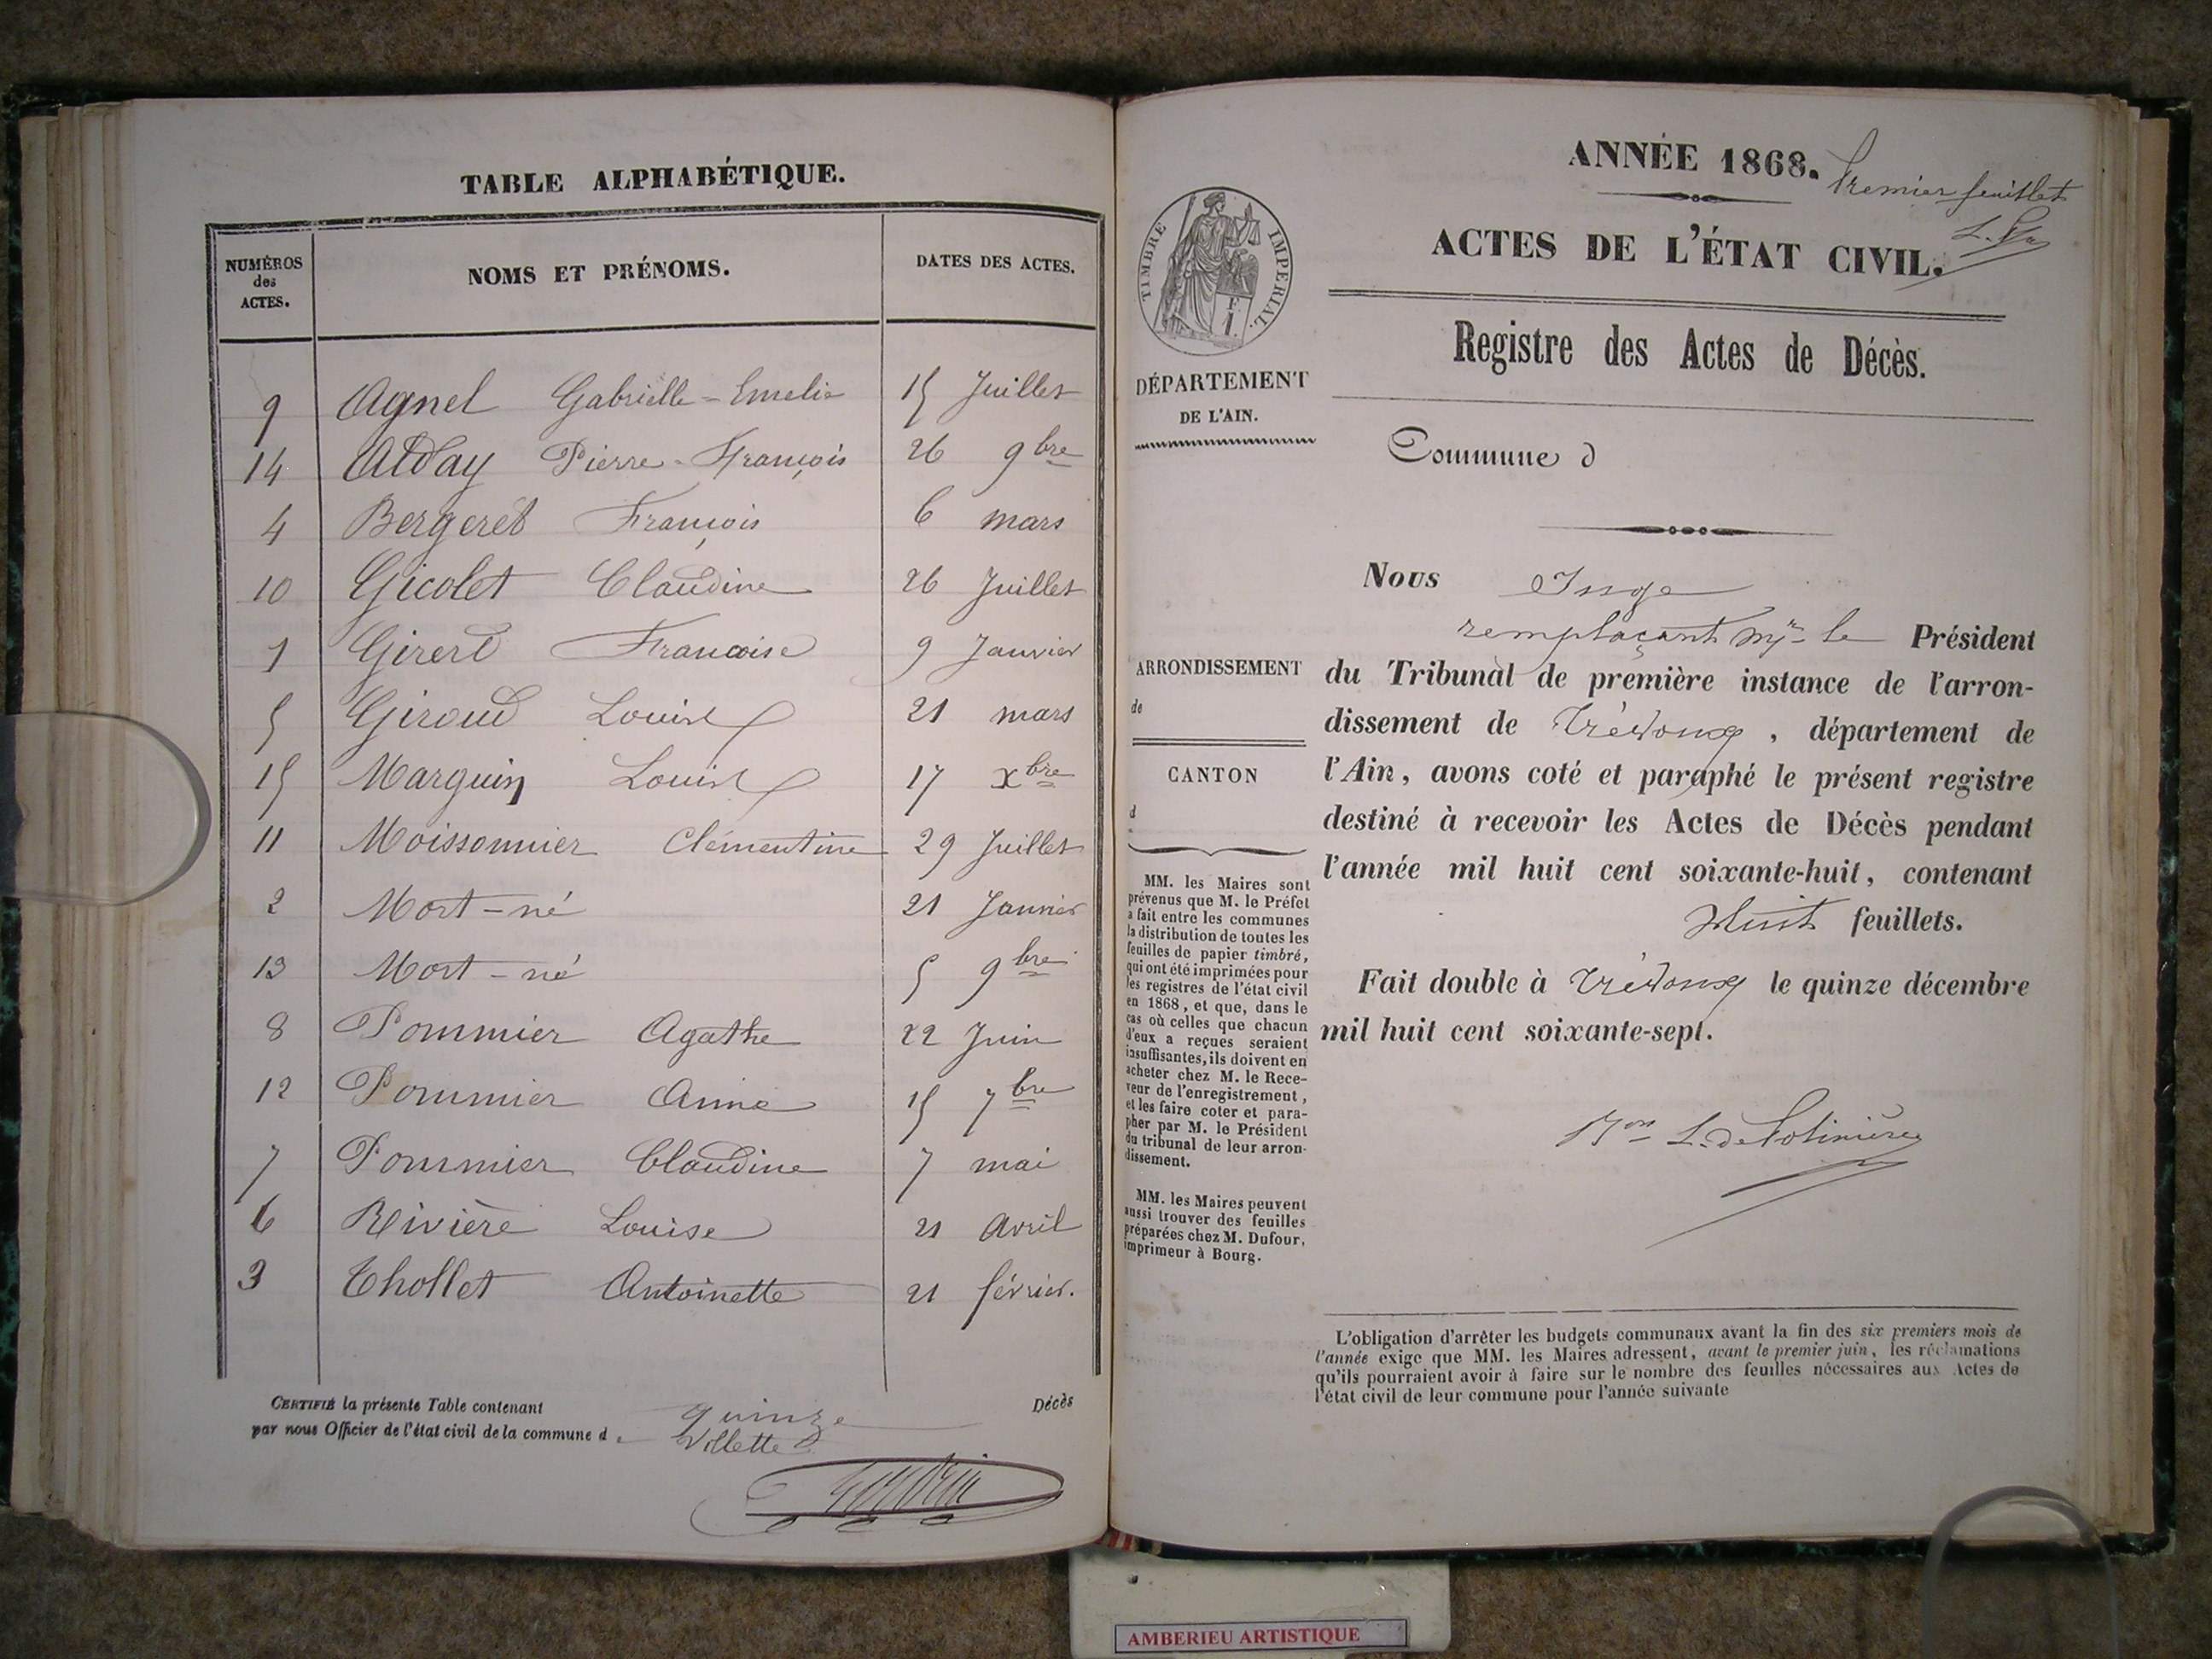 TABLE ALPHABÉTIQUE.
NUMÉROS des ACTES. NOMS ET PRÉNOMS. DATES DES ACTES.
9 Agnel Gabrielle-Emelie 15 Juillet
14 Alday Pierre-François 26 9bre
4 Bergeret François 6 mars
10 Gicolet Claudine 26 Juillet
1 Girerd Francoise 9 Janvier
5 Giroud Louise 21 mars
15 Marguin Louise 17 xbre
11 Moissonnier Clémentine 29 Juillet
2 Mort-né 21 Janvier
13 Mort-né 5 9bre
8 Pommier Agathe 22 Juin
12 Pommier Anne 15 7bre
7 Pommier Claudine 7 mai
6 Rivière Louise 21 avril
3 Thollet Antoinette 21 février.
CERTIFIÉ la présente Table contenant quinze Décès
par nous Officier de l'état civil de la commune de Villette
ANNÉE 1868.
Premier feuillet
ACTES DE L'ÉTAT CIVIL.
TIMBRE IMPÉRIAL.
Registre des Actes de Décès.
DÉPARTEMENT
DE L'AIN.
Commune d
Nous Juge
remplaçant Mr le Président
ARRONDISSEMENT
de
CANTON
d
du Tribunal de première instance de l'arron-
dissement de Trévoux, département de
l'Ain, avons coté et paraphé le présent registre
destiné à recevoir les Actes de Décès pendant
l'année mil huit cent soixante-huit, contenant
Huit feuillets.
Fait double à Trévoux le quinze décembre
mil huit cent soixante-sept.
MM. les Maires sont
prévenus que M. le Préfet
a fait entre les communes
la distribution de toutes les
feuilles de papier timbré,
qui ont été imprimées pour
les registres de l'état civil
en 1868, et que, dans le
cas où celles que chacun
d'eux a reçues seraient
insuffisantes, ils doivent en
acheter chez M. le Rece-
veur de l'enregistrement,
et les faire coter et para-
pher par M. le Président
du tribunal de leur arron-
dissement.
MM. les Maires peuvent
aussi trouver des feuilles
préparées chez M. Dufour,
imprimeur à Bourg.
L'obligation d'arrêter les budgets communaux avant la fin des six premiers mois de
l'année exige que MM. les Maires adressent, avant le premier juin, les réclamations
qu'ils pourraient avoir à faire sur le nombre des feuilles nécessaires aux Actes de
l'état civil de leur commune pour l'année suivante
AMBERIEU ARTISTIQUE